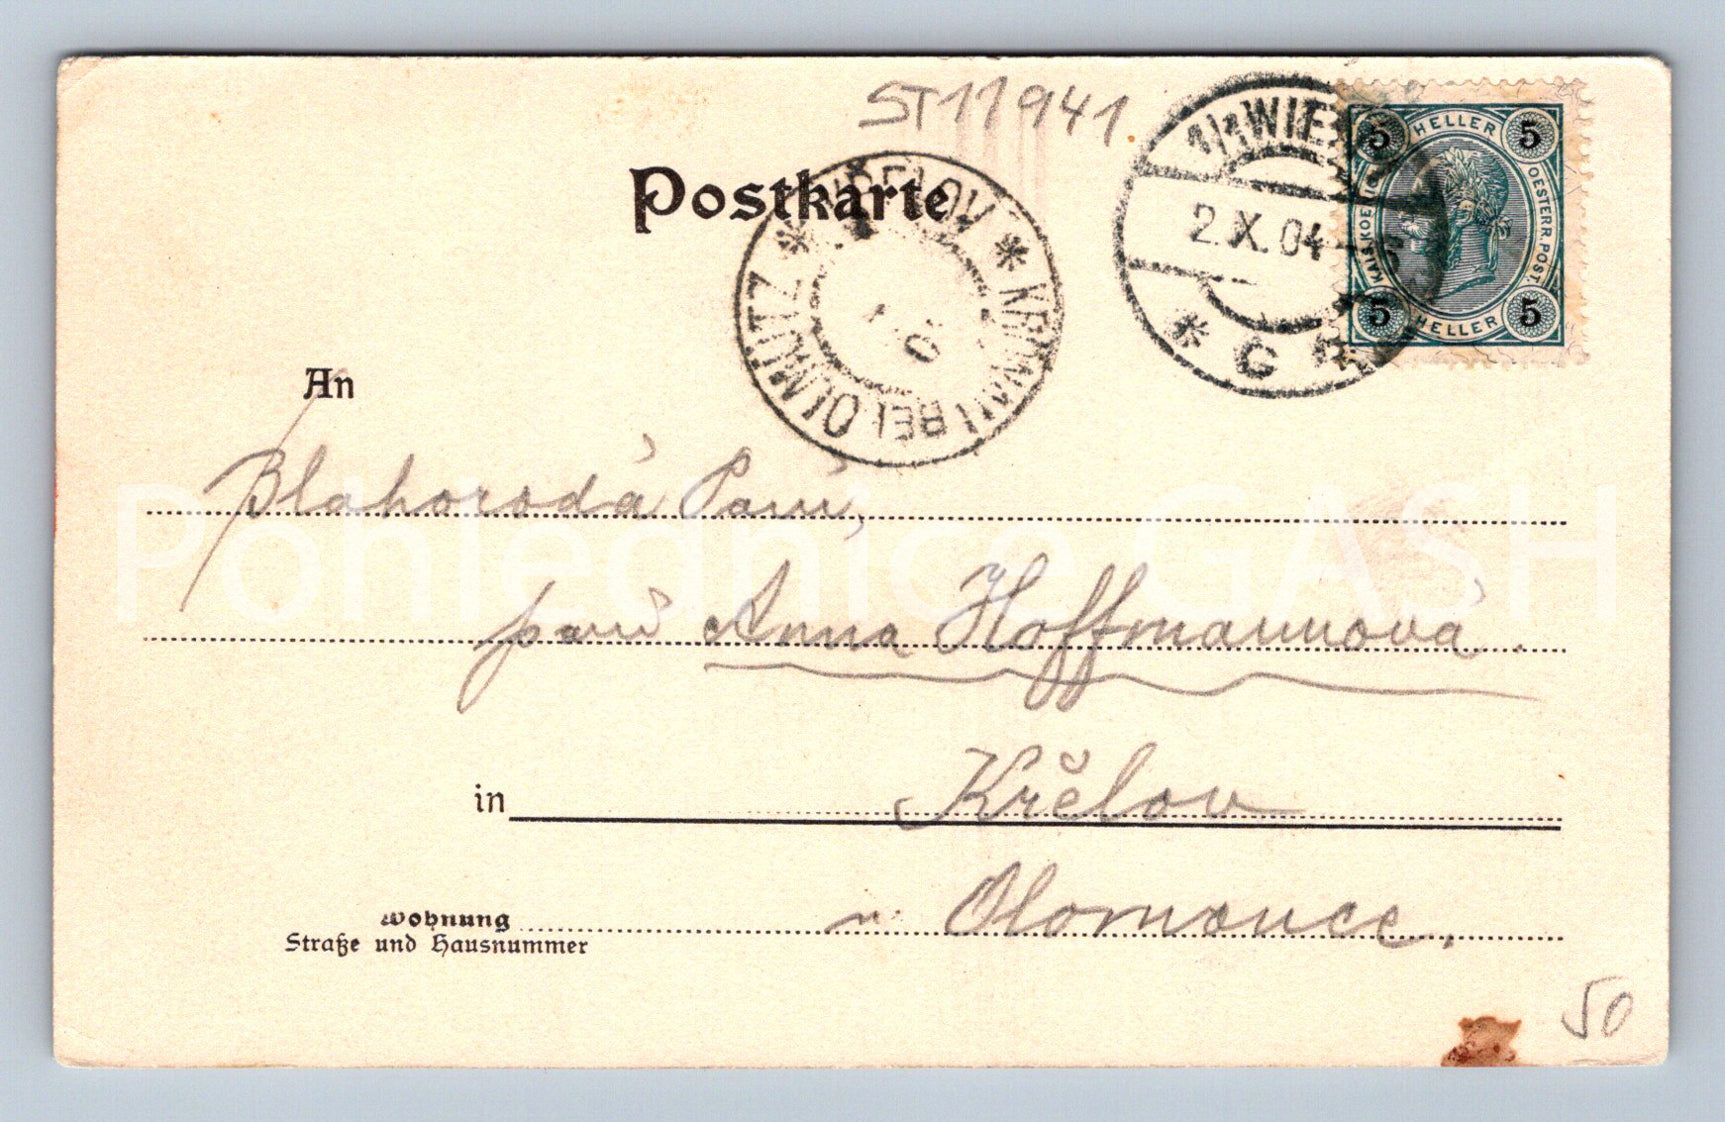 ST11941
Postkarte
1/1 WIE
2.X.04
* G
5 HELLER 5
KAIS. KOENIG
OESTERR. POST.
5 HELLER 5
* KŘELOV *
KRENAU BEI OLMÜTZ
An
Blahorodá Paní,
paní Anna Hoffmannová.
in Křelov
u Olomouce.
Wohnung
Straße und Hausnummer
50
Pohlednice GASH